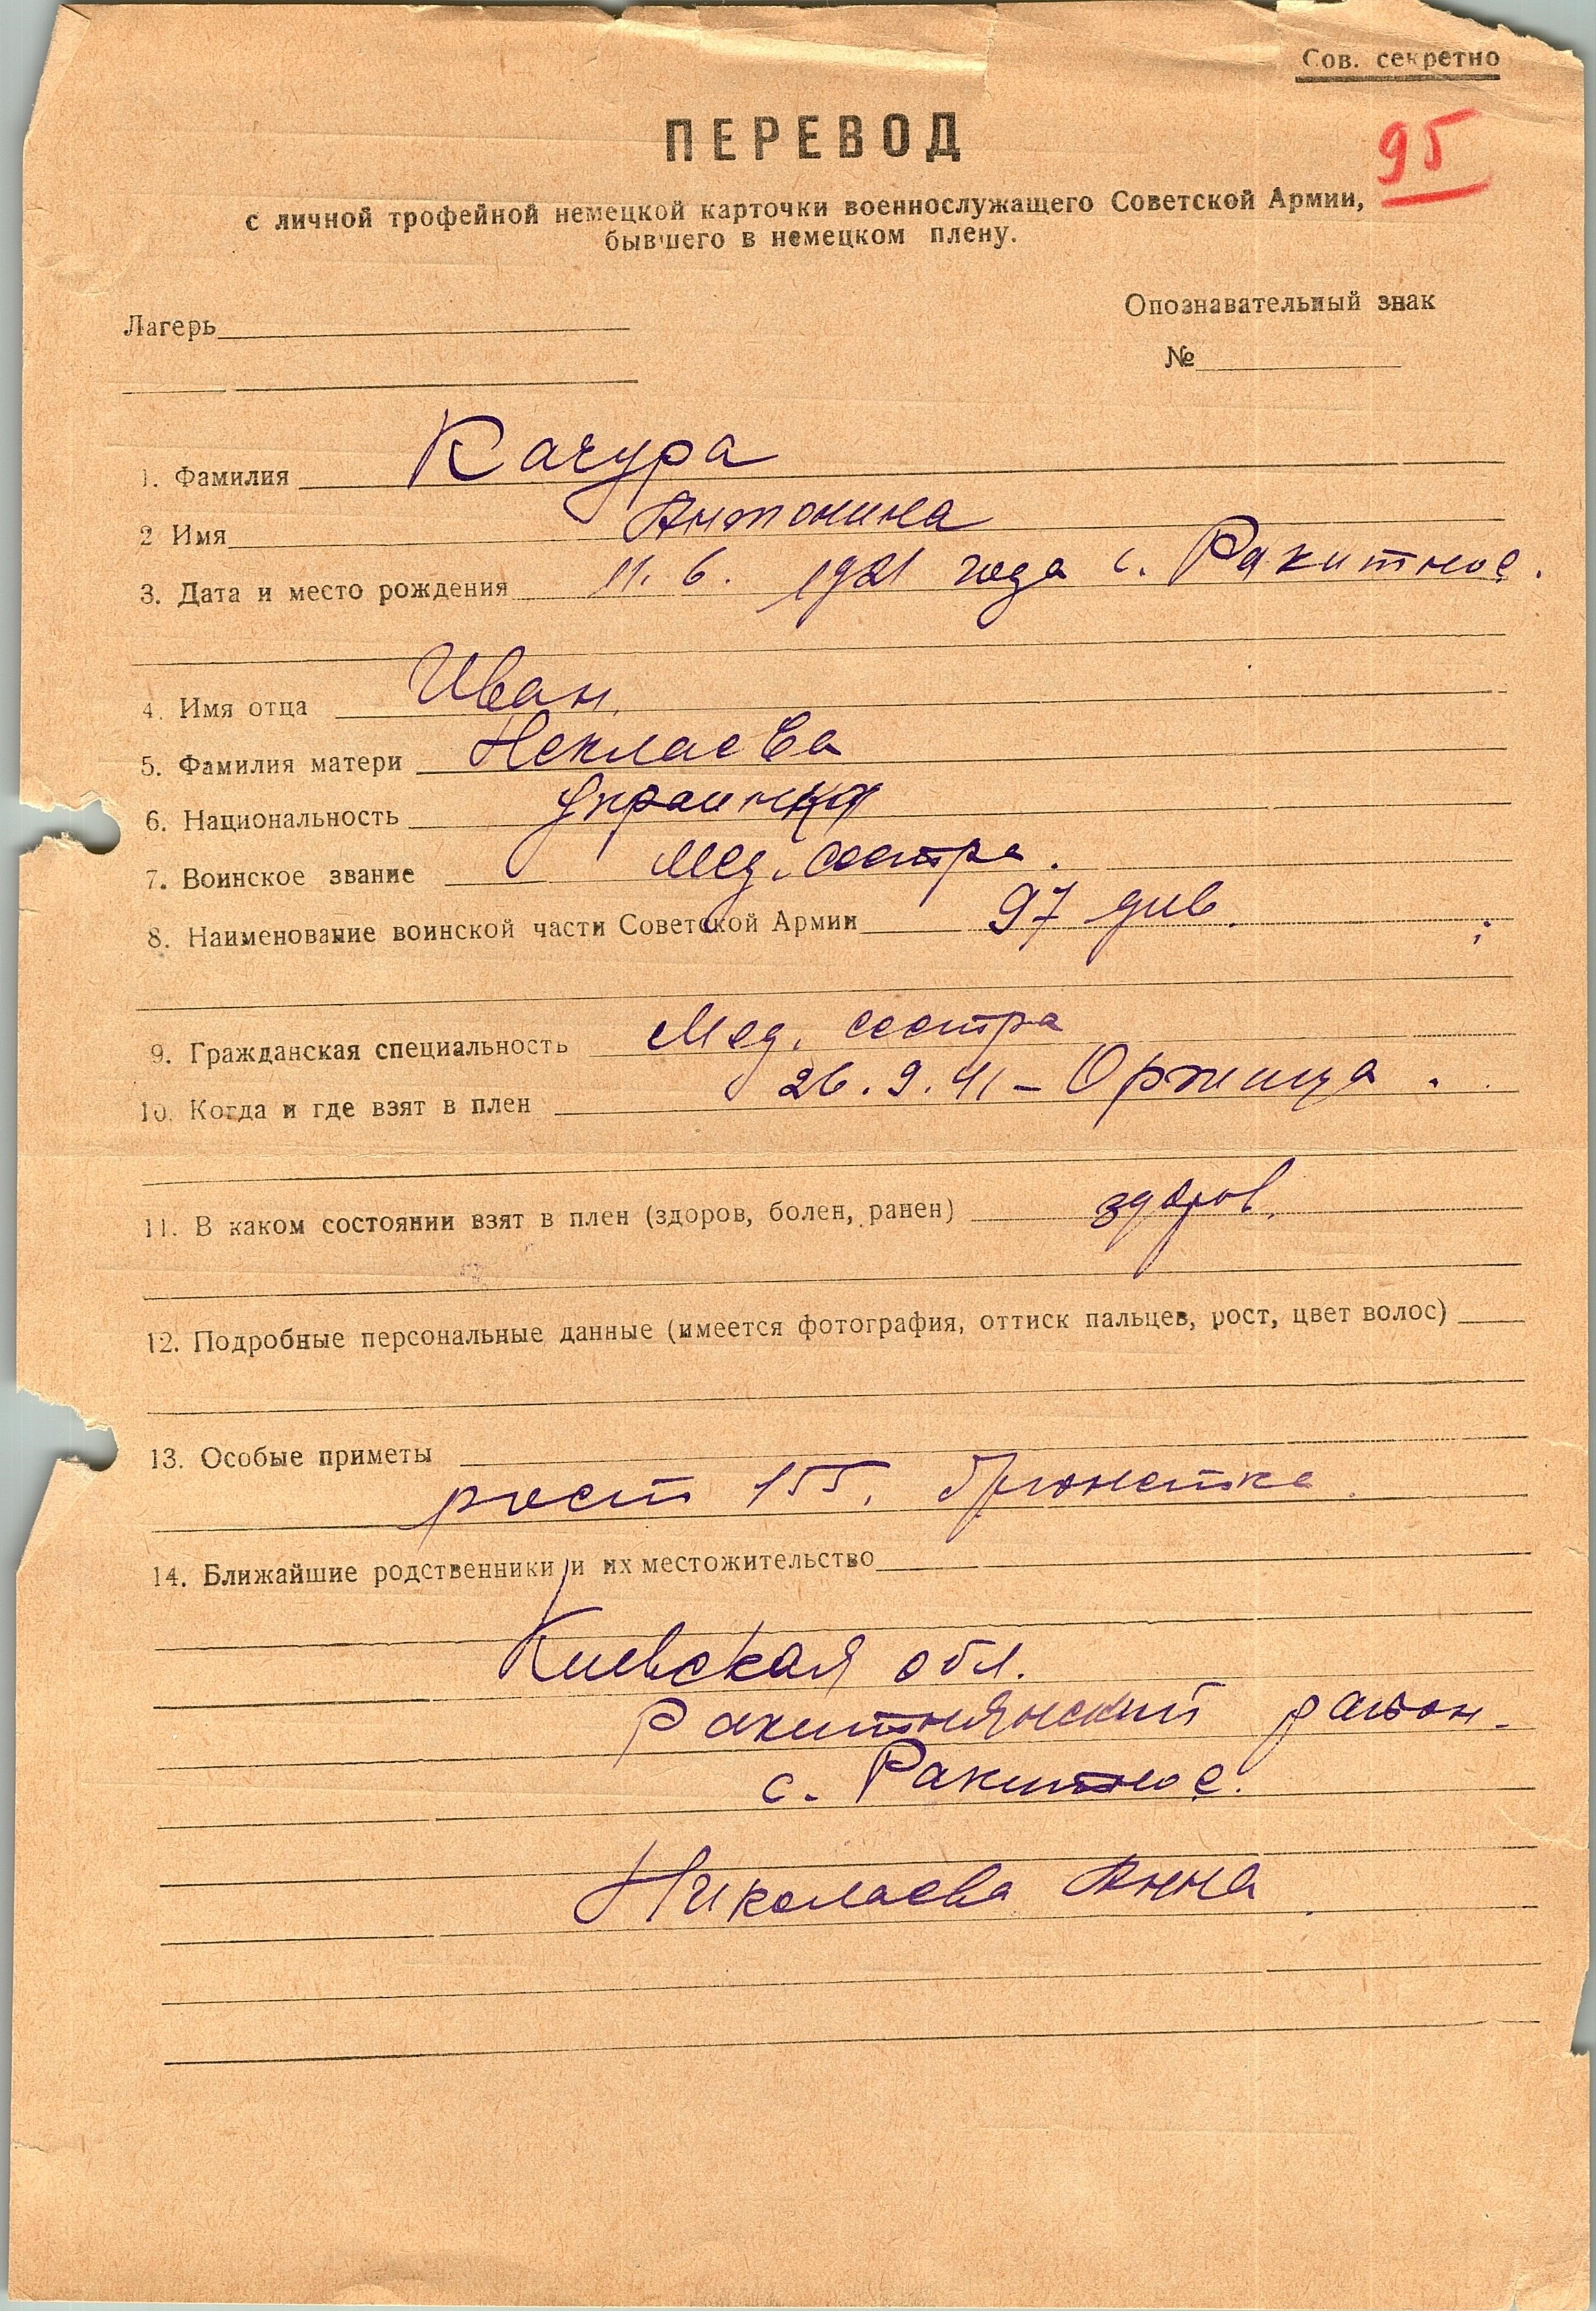 Сов. секретно
ПЕРЕВОД
95
с личной трофейной немецкой карточки военнослужащего Советской Армии,
бывшего в немецком плену.
Опознавательный знак
Лагерь
№
1. Фамилия Качура
2 Имя Антонина
3. Дата и место рождения 11. 6. 1921 года с. Ракитное.
4. Имя отца Иван.
5. Фамилия матери
6. Национальность украинка
7. Воинское звание мед. сестра.
8. Наименование воинской части Советской Армии 97 див.
9. Гражданская специальность мед. сестра
10. Когда и где взят в плен 26.9.41 – Оржица.
11. В каком состоянии взят в плен (здоров, болен, ранен) здоров.
12. Подробные персональные данные (имеется фотография, оттиск пальцев, рост, цвет волос)
13. Особые приметы
рост 155, брюнетка.
14. Ближайшие родственники и их местожительство
Киевская обл.
Ракитнянский район.
с. Ракитное.
Николаева Анна